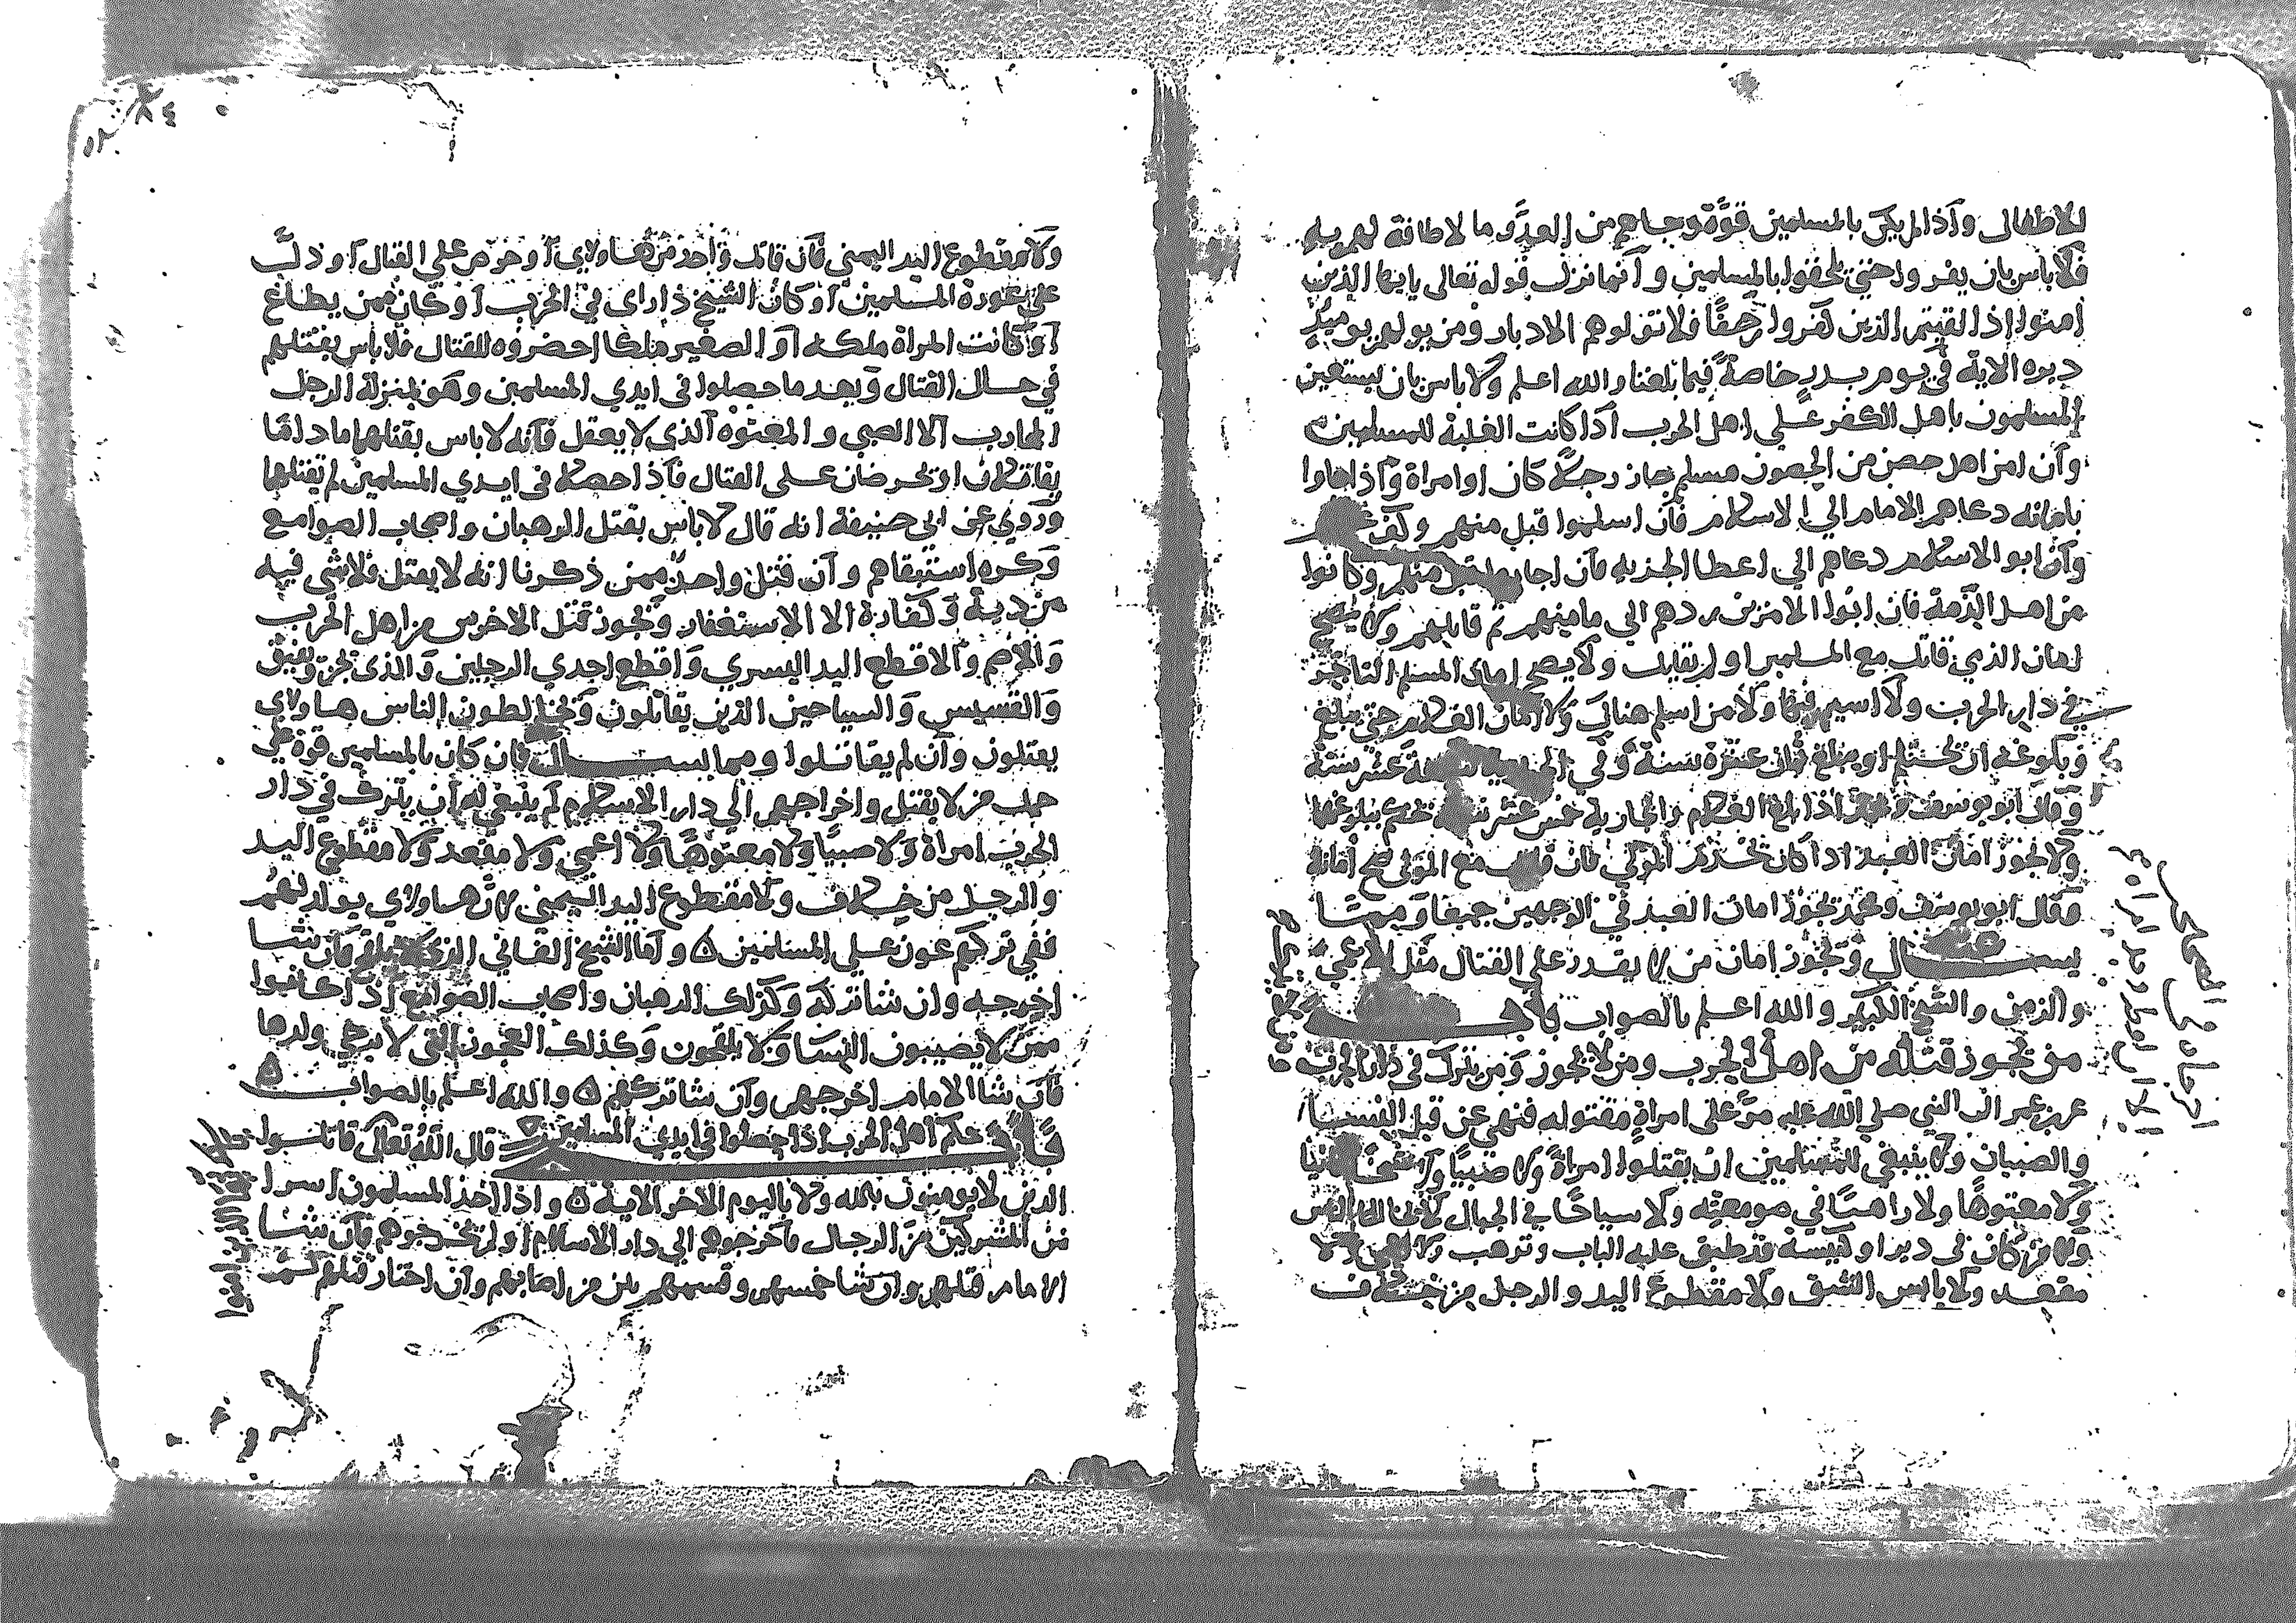 للاطفال واذا لم يكن بالمسلمين قوة وجاهم من العدو ما لا طاقة لهم به
فلا باس بان يفروا حتي يلحقوا بالمسلمين وانما نزل قوله تعالى يايها الذين
امنوا اذا لقيتم الذين كفروا زحفا فلا تولوهم الادبار ومن يولهم يوميذ
دبره الاية في يوم بدر خاصة فيما بلغنا والله اعلم ولا باس بان يستعين
المسلمون باهل الكفر علي اهل الحرب اذا كانت الغلبة للمسلمين
وان امن اهل حصن من الحصون مسلم جاز رجلا كان او امراة واذا جاوا
بامانه دعاهم الامام الي الاسلام فان اسلموا قبل منهم وكف
وان ابوا الاسلام دعاهم الي اعطا الجزية فان اجابوا قبل منهم وكانوا
من اهل الذمة فان ابوا الامرين ردهم الي مامنهم ثم قاتلهم ولا يصح
امان الذمي قاتل مع المسلمين او لم يقاتل ولا يصح امان المسلم التاجر
في دار الحرب ولا اسير فيها ولا من اسلم هناك ولا امان الغلام حتي يبلغ
وبلوغه ان يحتلم او يبلغ ثمان عشرة سنة وفي الجارية سبعة عشر سنة
وقال ابو يوسف ومحمد اذا بلغ الغلام والجارية خمس عشر سنة حكم ببلوغهما
ولا يجوز امان العبد اذا كان يخدم المولي فان قاتل مع المولى صح امانه
وقال ابو يوسف ومحمد يجوز امان العبد في الوجهين جميعا ومما
يسال ويجوز امان من لا يقدر علي القتال مثل الاعمي
والزمن والشيخ الكبير والله اعلم بالصواب باب
من يجوز قتله من اهل الحرب ومن لا يجوز ومن يترك في دار الحرب
عن بن عمر ان النبي صلي الله عليه مر على امراة مقتولة فنهي عن قتل النسا
والصبيان ولا ينبغي للمسلمين ان يقتلوا امراة ولا صبيا ولا شيخا فانيا
ولا معتوها ولا راهبا في صومعته ولا سياحا في الجبال لا يخالط الناس
ولا من كان في دير او كنيسة قد طبق عليه الباب وترهب ولا اعمي ولا
مقعد ولا يابس الشق ولا مقطوع اليد والرجل من خلاف
ولا مقطوع اليد اليمني فان قاتل واحد من هاولاي او حرص علي القتال او دل
علي عورة المسلمين او كان الشيخ ذا راى في الحرب او كان ممن يطاع
او كانت المراة ملكه او الصغير ملكا احضروه للقتال فلا باس بقتلهم
في حال القتال وبعد ما حصلوا في ايدي المسلمين وهو بمنزلة الرجل
المحارب الا الصبي والمعتوه الذي لا يعقل فانه لا باس بقتلهما ماداما
يقاتلان او يحرضان علي القتال فاذا حصلا في ايدي المسلمين لم يقتلهما
وروي عن ابي حنيفة انه قال لا باس بقتل الرهبان واصحاب الصوامع
وكره استبقاهم وان قتل واحد ممن ذكرنا انه لا يقتل فلا شي فيه
من دية وكفارة الا الاستغفار ويجوز قتل الاخرس من اهل الحرب
والاصم والاقطع اليد اليسري واقطع احدي الرجلين والذي يجن ويفيق
والقسيس والسياحين الذين يقاتلون ويخالطون الناس هاولاي
يقتلون وان لم يقاتلوا ومما يسال فان كان بالمسلمين قوة علي
حمل من لا يقتل واخراجهم الي دار الاسلام لم ينبغي له ان يترك في دار
الحرب امراة ولا صبيا ولا معتوها ولا اعمي ولا مقعد ولا مقطوع اليد
والرجل من خلاف ولا مقطوع اليد اليمني لان هاولاي يولد لهم
ففي تركهم عون علي المسلمين ه واما الشيخ الفاني الذي لا يلقح فان شا
اخرجه وان شا تركه وكذلك الرهبان واصحاب الصوامع اذا كانوا
ممن لا يصيبون النسا ولا يلقحون وكذلك العجوز التي لا يرجي ولدها
فان شا الامام اخرجهم وان شا تركهم ه والله اعلم بالصواب ه
باب حكم اهل الحرب اذا حصلوا في ايدي المسلمين قال الله تعالى قاتلوا
الذين لا يومنون بالله ولا باليوم الاخر الاية ه واذا اخذ المسلمون اسرا
من المشركين من الرجال فاخرجوهم الي دار الاسلام او لم يخرجوهم فان شا
الامام قتلهم وان شا خمسهم وقسمهم بين من اصابهم وان اختار قتلهم